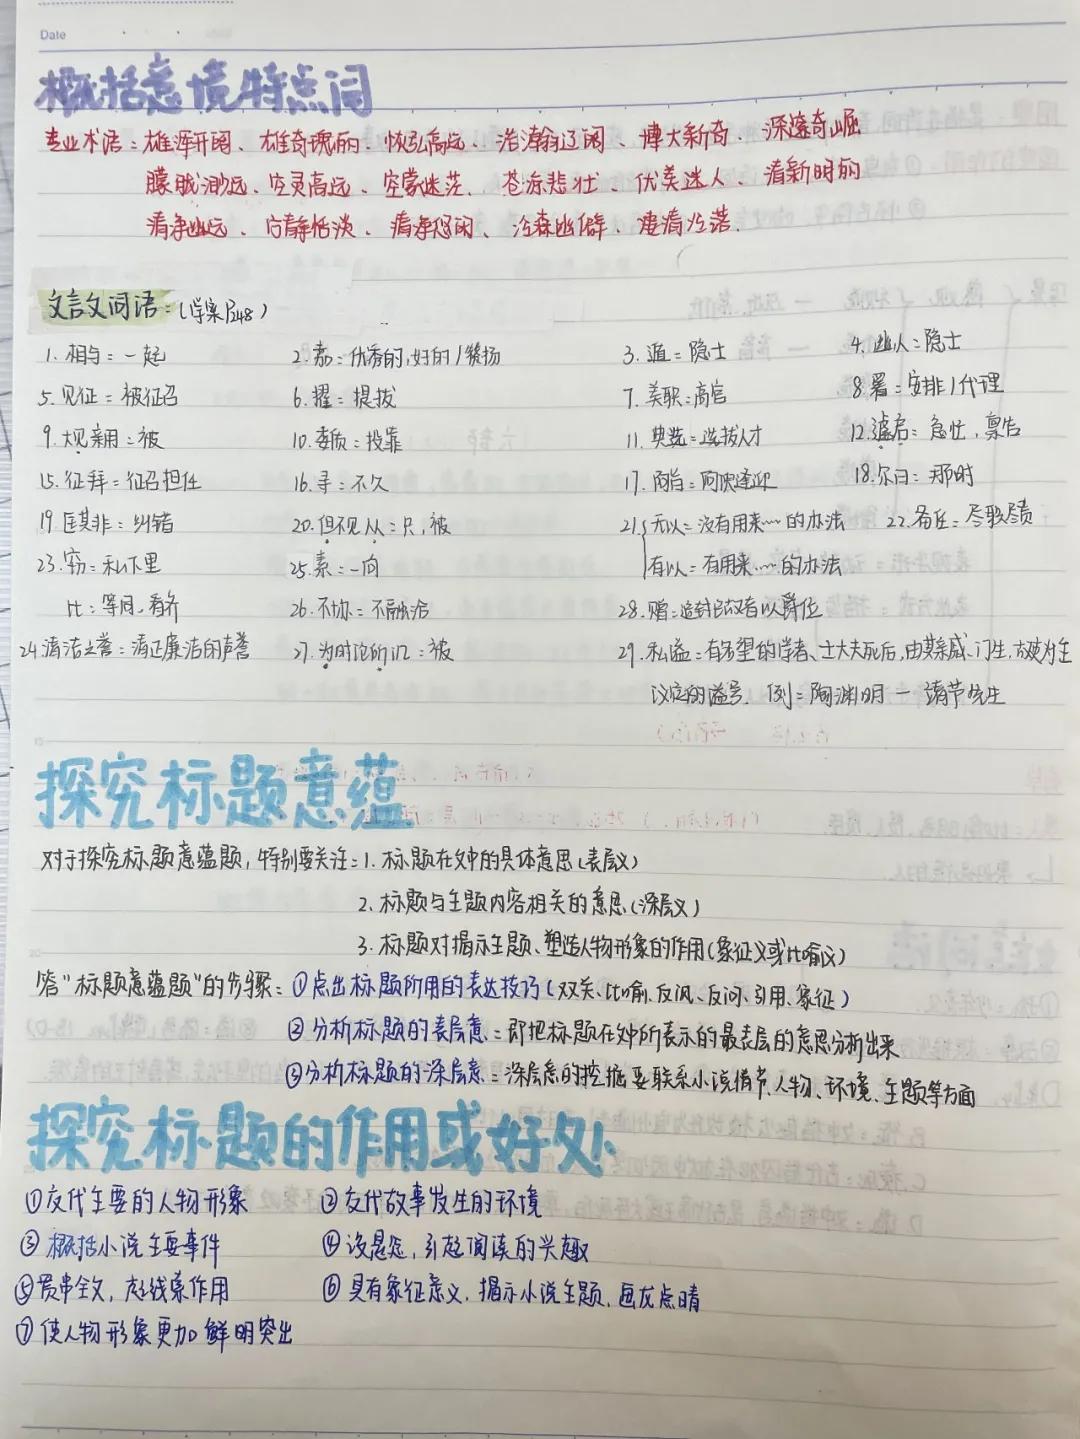 Date
概括意境特点词
专业术语：雄浑开阔、雄奇瑰丽、恢弘高远、浩瀚辽阔、博大新奇、深邃奇崛
朦胧渺远、空灵高远、空蒙迷茫、苍凉悲壮、优美迷人、清新明丽
清净幽远、宁静恬淡、清净悠闲、冷森幽僻、凄清冷落.
文言文词语：(学案P248)
1. 相与：一起 2. 嘉：优秀的,好的/赞扬 3. 遁：隐士 4. 幽人：隐士
5. 见征：被征召 6. 擢：提拔 7. 美职：高官 8 署：安排/代理
9. 见亲用：被 10. 委质：投靠 11. 典选：选拔人才 12. 遽启：急忙，禀告
15. 征拜：征召担任 16. 寻：不久 17. 阿旨：阿谀逢迎 18. 尔日：那时
19 匡其非：纠错 20. 但不见从：只，被 21 无以：没有用来……的办法 22. 备位：尽职尽责
23. 窃：私下里 25. 素：一向 有以：有用来……的办法
比：等同，看齐 26. 不协：不融洽 28. 赠：追封已故者以爵位
24. 清洁之誉：清正廉洁的声誉 27. 为时论所讥：被 29. 私谥：有名望的学者、士大夫死后，由其亲戚、门生、故吏为主
议定的谥号. 例：陶渊明 — 靖节先生
探究标题意蕴
对于探究标题意蕴题，特别要关注：1. 标题在文中的具体意思(表层义)
2. 标题与主题内容相关的意思(深层义)
3. 标题对揭示主题、塑造人物形象的作用(象征义或比喻义)
答“标题意蕴题”的步骤：①点出标题所用的表达技巧(双关、比喻、反讽、反问、引用、象征)
②分析标题的表层意：即把标题在文中所表示的最表层的意思分析出来
③分析标题的深层意：深层意的挖掘要联系小说情节、人物、环境、主题等方面
探究标题的作用或好处
①交代主要的人物形象 ②交代故事发生的环境
③概括小说主要事件 ④设悬念，引起阅读的兴趣
⑤贯串全文，起线索作用 ⑥具有象征意义，揭示小说主题，画龙点睛
⑦使人物形象更加鲜明突出